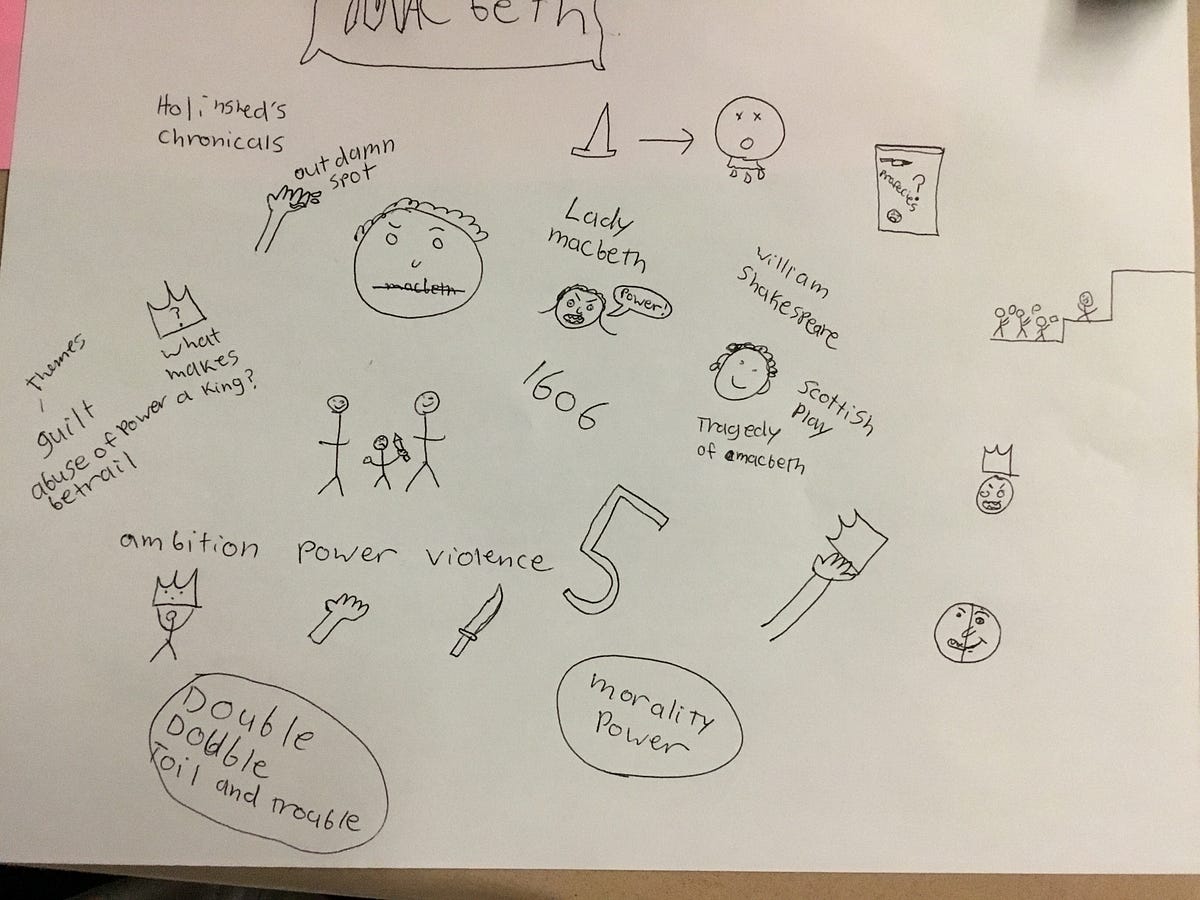 Macbeth
Holinshed's
Chronicals
out damn
spot
macbeth
Lady
macbeth
Power!
William
Shakespeare
?
Propecies
?
what
makes
a king?
themes
guilt
abuse of power
betrail
1606
Scottish
Play
Tragedy
of macbeth
ambition power violence
5
Double
Double
Toil and trouble
morality
Power